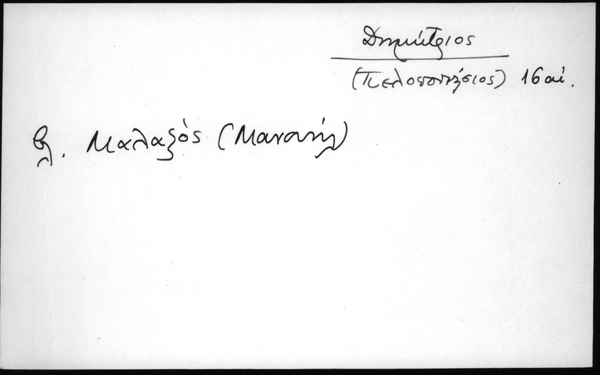 Δημήτριος
(Πελοποννήσιος) 16 αἰ.
βλ. Μαλαξὸς (Μανουήλ)